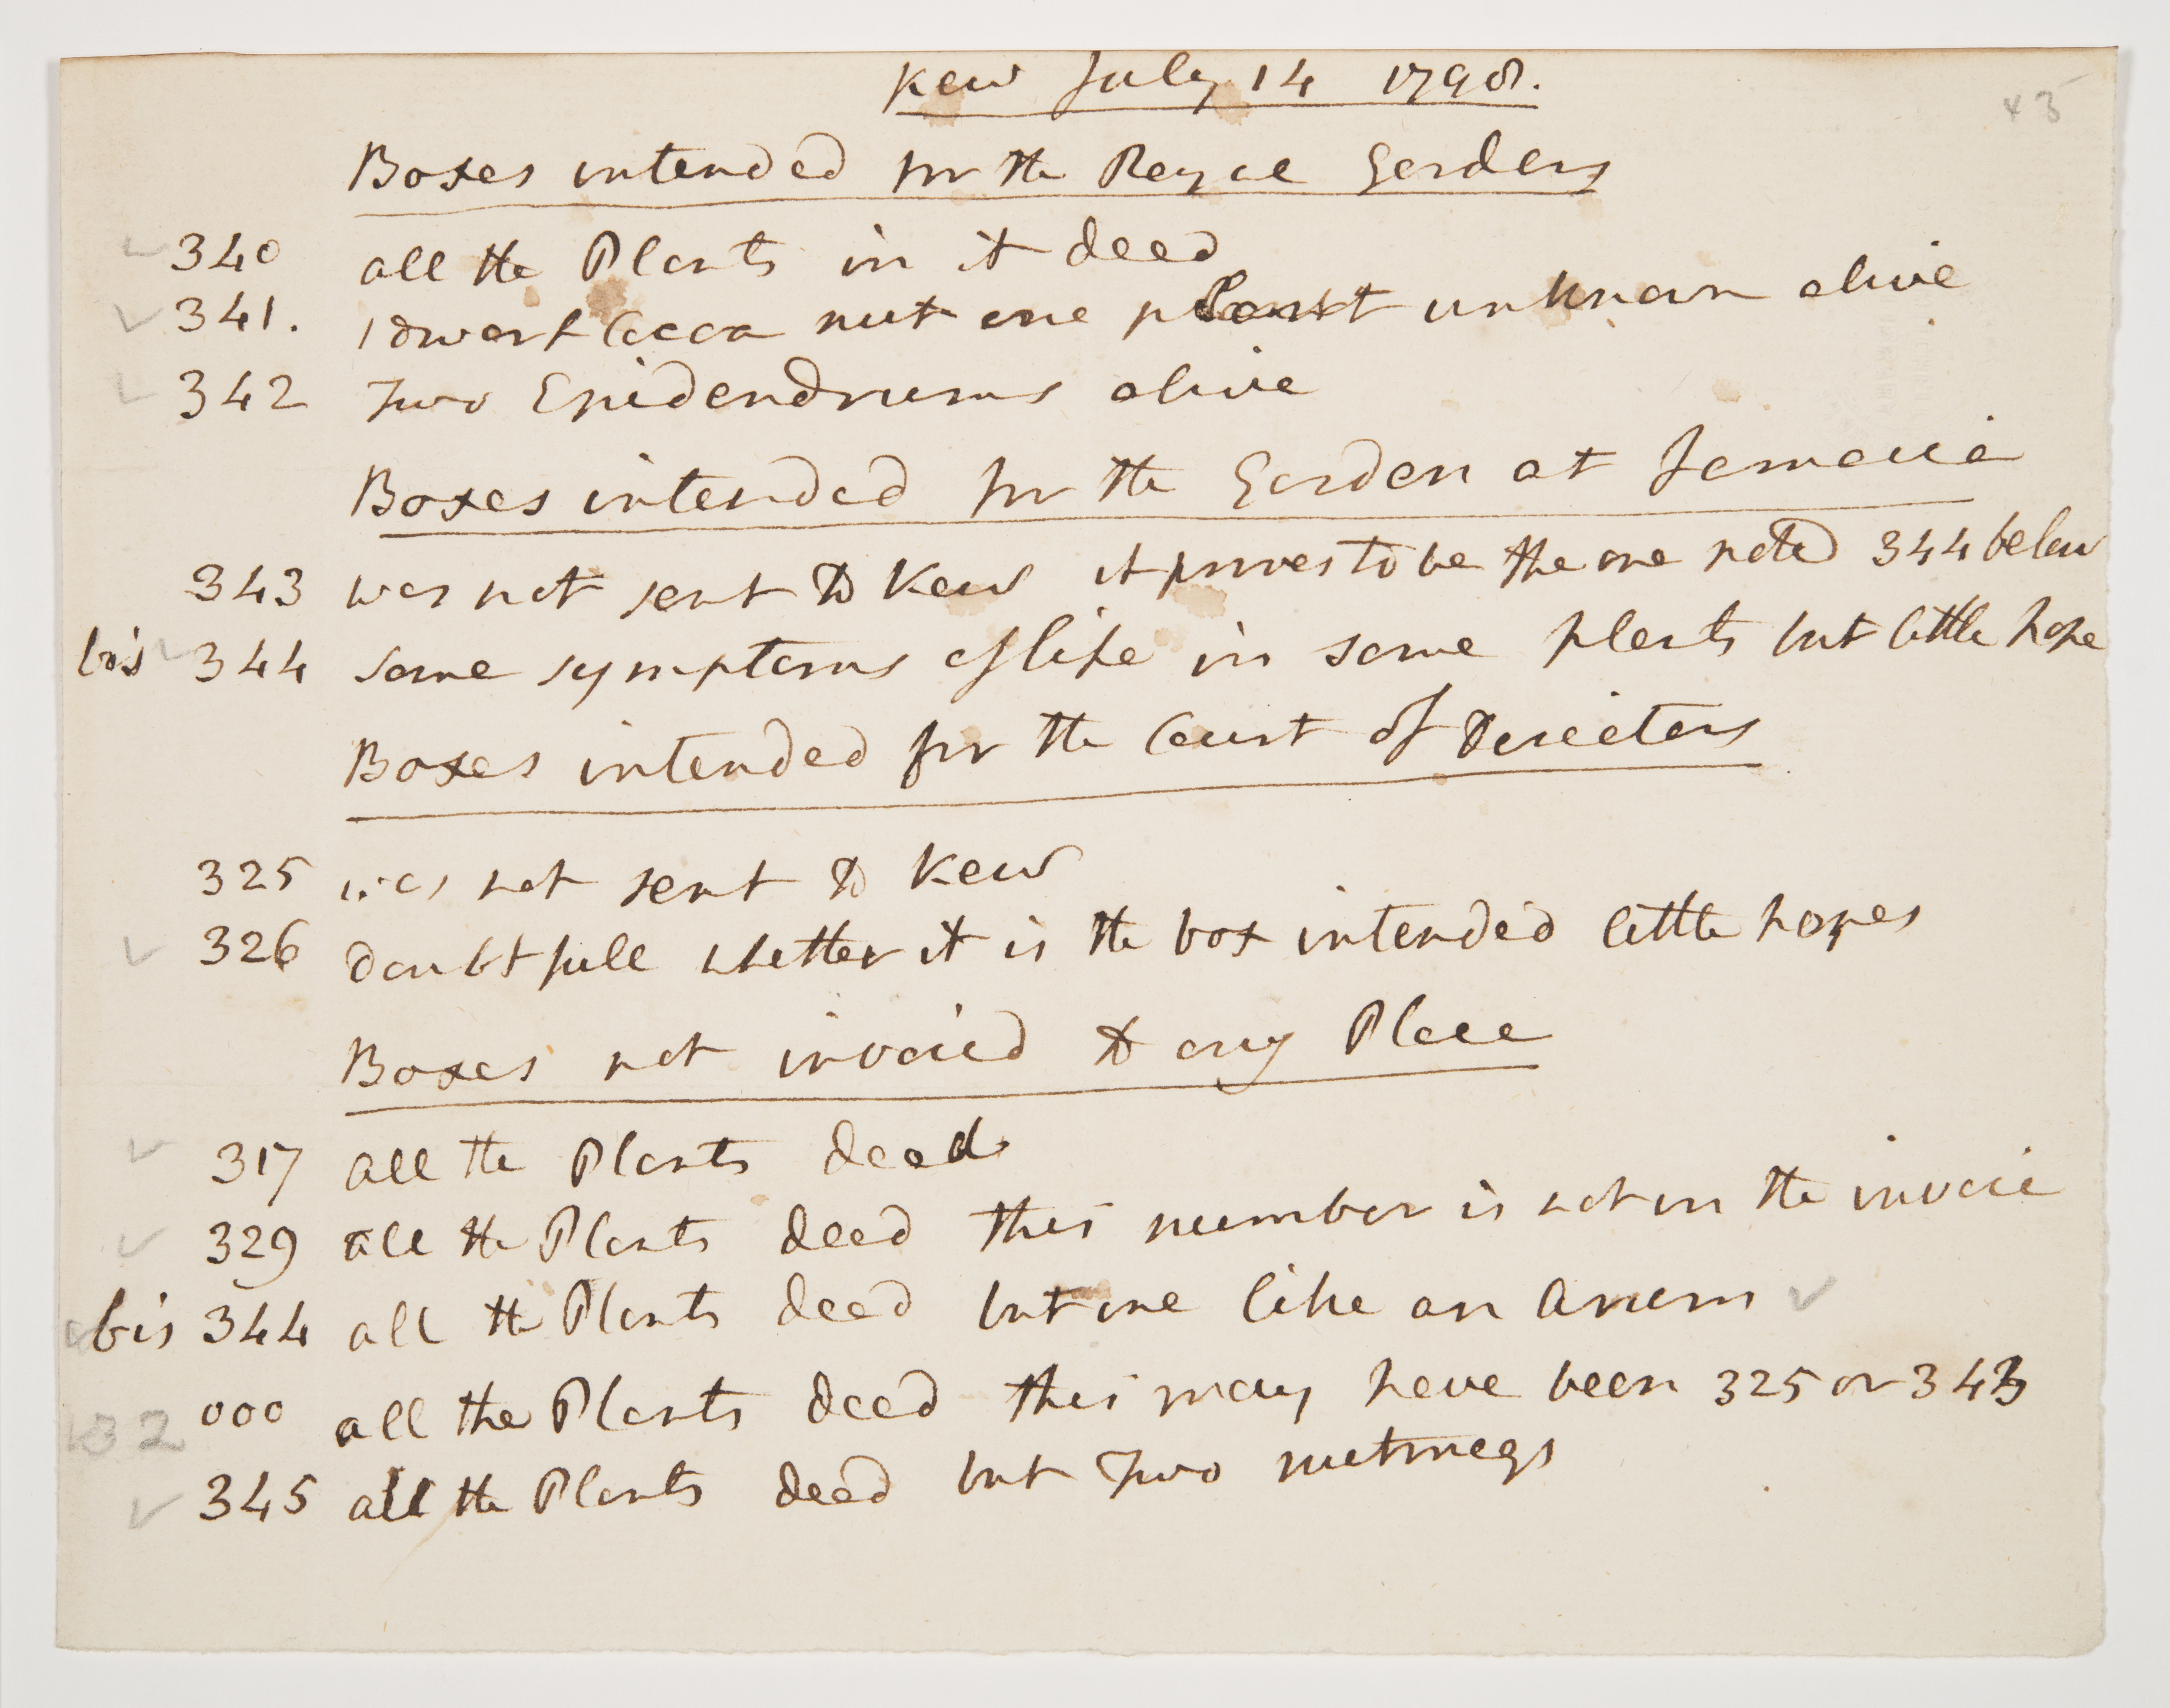 Kew July 14 1798.
45
Boxes intended for the Royal Gardens
340 all the Plants in it dead
341. 1 dwarf Cocoa nut one plant unknown alive
342 Two Epidendrums alive
Boxes intended for the Garden at Jamaica
343 was not sent to Kew it proves to be the one noted 344 below
bis 344 some symptoms of life in some plants but little hope
Boxes intended for the Court of Directors
325 was not sent to Kew
326 doubtfull whether it is the box intended little hopes
Boxes not invoicd to any Place
317 all the Plants dead
329 all the Plants dead this number is not in the invoice
bis 344 all the Plants dead but one like an Arum
000 all the Plants dead this may have been 325 or 343
132
345 all the Plants dead but Two nutmegs